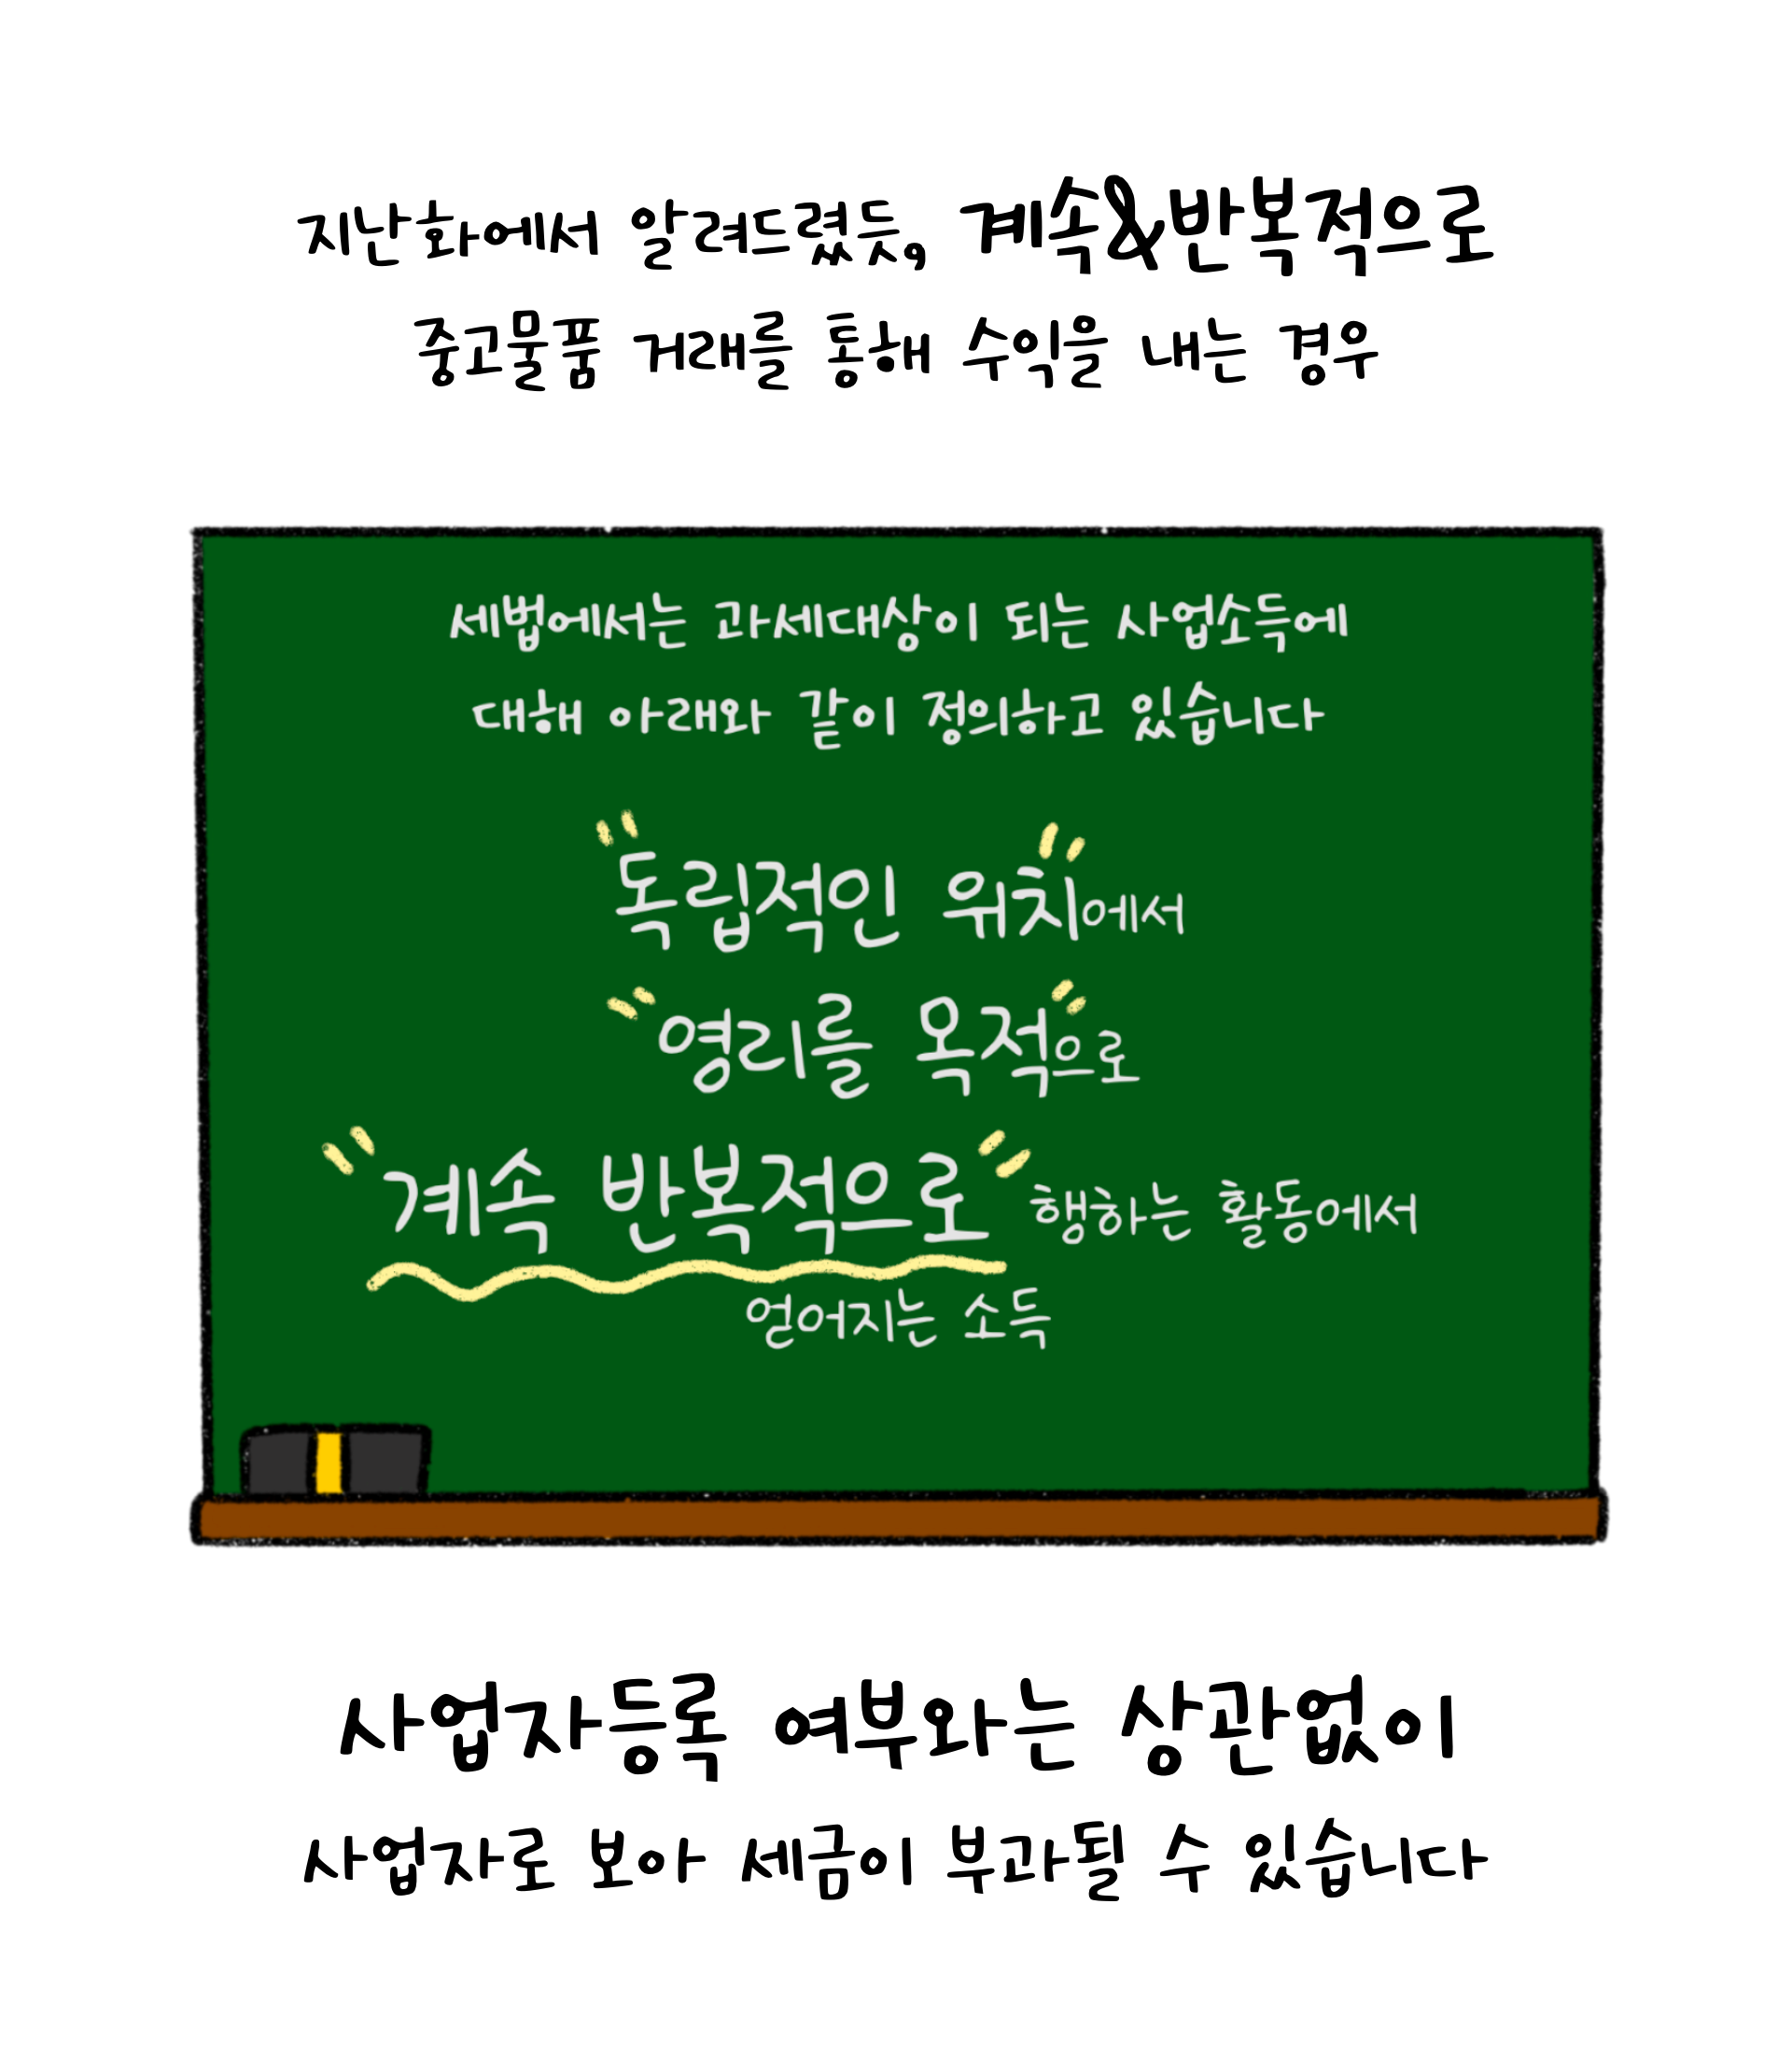 지난화에서 알려드렸듯, 계속&반복적으로
중고물품 거래를 통해 수익을 내는 경우
세법에서는 과세대상이 되는 사업소득에
대해 아래와 같이 정의하고 있습니다
독립적인 위치에서
영리를 목적으로
계속 반복적으로 행하는 활동에서
얻어지는 소득
사업자등록 여부와는 상관없이
사업자로 보아 세금이 부과될 수 있습니다